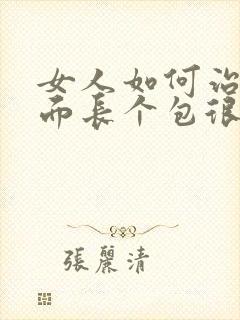 女人如何治
而长个包很
張麗清